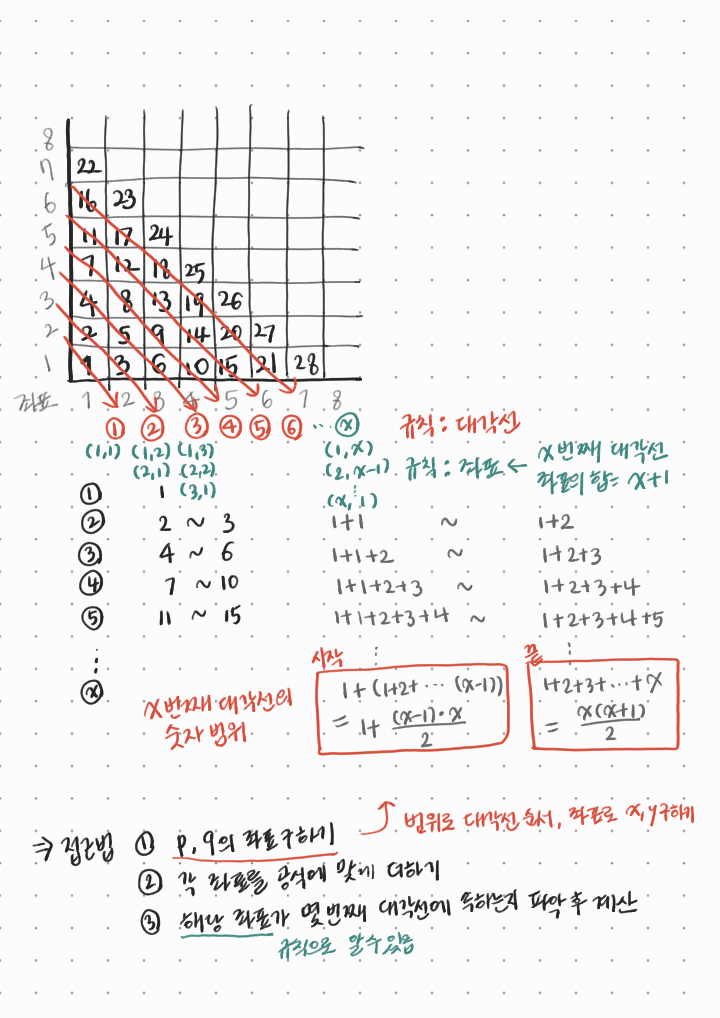 8
7 22
6 16 23
5 11 17 24
4 7 12 18 25
3 4 8 13 19 26
2 2 5 9 14 20 27
1 1 3 6 10 15 21 28
좌표 1 2 3 4 5 6 7 8
① ② ③ ④ ⑤ ⑥ ... ⓧ 규칙 : 대각선
(1,1) (1,2) (1,3) (1,x)
(2,1) (2,2) (2,x-1) 규칙 : 좌표 ← x번째 대각선
(3,1) ⋮ 좌표의 합 = x+1
(x,1)
① 1
② 2 ~ 3 1+1 ~ 1+2
③ 4 ~ 6 1+1+2 ~ 1+2+3
④ 7 ~ 10 1+1+2+3 ~ 1+2+3+4
⑤ 11 ~ 15 1+1+2+3+4 ~ 1+2+3+4+5
⋮ ⋮ ⋮
시작 끝
ⓧ x번째 대각선의 1+(1+2+ ... (x-1)) 1+2+3+...+x
숫자 범위 = 1+ (x-1)·x/2 = x(x+1)/2
범위로 대각선 순서, 좌표로 x,y구하기
⇒ 접근법 ① p, q의 좌표구하기
② 각 좌표를 공식에 맞게 더하기
③ 해당 좌표가 몇번째 대각선에 속하는지 파악 후 계산
규칙으로 알수있음